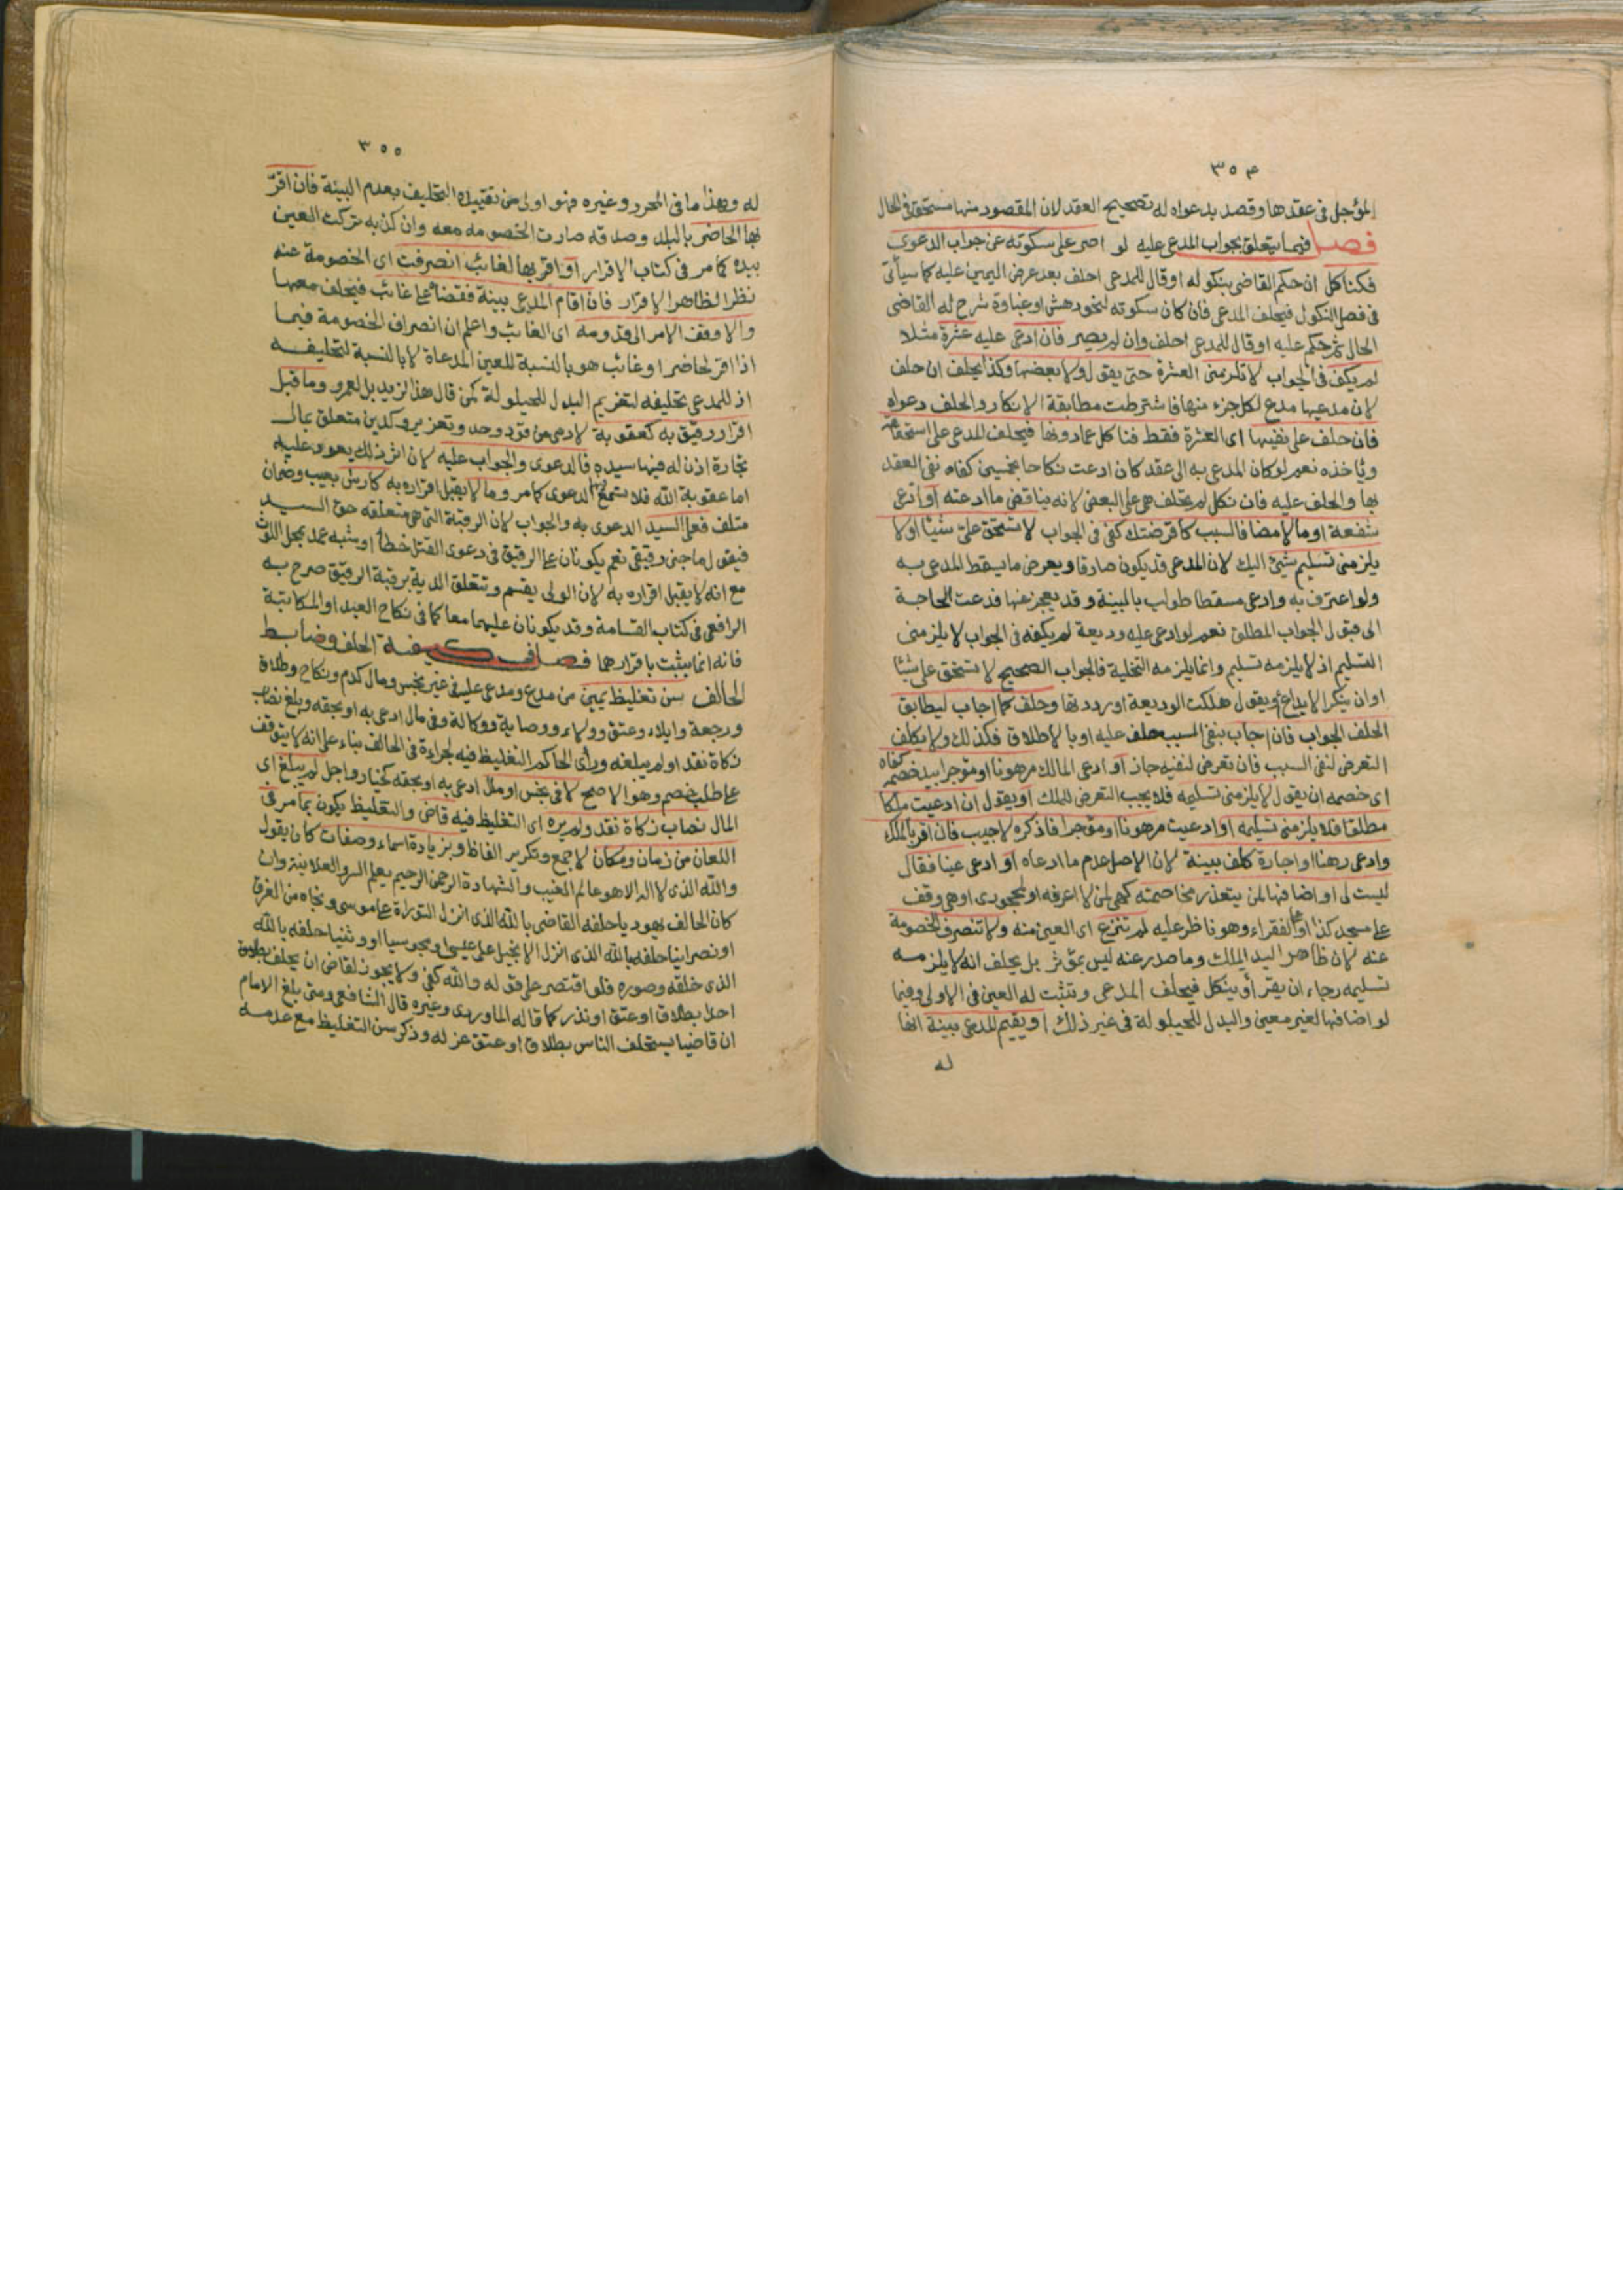 ٣٥٤
المؤجل في عقدها وقصد بدعواه له تصحيح العقد لان المقصود منها مستحق في الحال
فصل فيما يتعلق بجواب المدعى عليه لو اصر على سكوته عن جواب الدعوى
فكناكل ان حكم القاضى بنكوله او قال للمدعى احلف بعد عرض اليمين عليه كما سيأتى
في فصل النكول فيحلف المدعى فان كان سكوته لنحو دهش او غباوة شرح له القاضى
الحال ثم حكم عليه او قال للمدعى احلف وان لم يصر فان ادعى عليه عشرة مثلا
لم يكف في الجواب لا تلزمنى العشرة حتى يقول ولا بعضها وكذا يحلف ان حلف
لان مدعيها مدع لكل جزء منها فاشترطت مطابقة الانكار والحلف دعواه
فان حلف على نفيها اى العشرة فقط فناكل عما دونها فيحلف المدعى على استحقاقه
وياخذه نعم لو كان المدعى به الى عقد كان ادعت نكاحا بخمسين كفاه نفى العقد
بها والحلف عليه فان نكل لم يحلف هى على البعض لانه يناقض ما ادعته او ادعى
شفعة او مالا مضافا لسبب كاقرضتك كفى في الجواب لا تستحق على شيئا او لا
يلزمنى تسليم شيئ اليك لان المدعى قد يكون صادقا ويعرض ما يسقط المدعى به
ولو اعترف به وادعى مسقطا طولب بالبينة وقد يعجز عنها فدعت الحاجة
الى قبول الجواب المطلق نعم لو ادعى عليه وديعة لم يكفه في الجواب لا يلزمنى
التسليم اذ لا يلزمه تسليم وانما يلزمه التخلية فالجواب الصحيح لا تستحق على شيئا
او ان ينكر الايداع او يقول هلكت الوديعة او رددتها وحلف كما اجاب ليطابق
الحلف الجواب فان اجاب بنفى السبب حلف عليه او بالاطلاق فكذلك ولا يكلف
التعرض لنفى السبب فان تعرض لنفيه جاز او ادعى المالك مرهونا او مؤجرا بيد خصمه كفاه
اى خصمه ان يقول لا يلزمنى تسليمه فلا يجب التعرض للملك او يقول ان ادعيت ملكا
مطلقا فلا يلزمنى تسليمه او ادعيت مرهونا او مؤجرا فاذكره لاجيب فان اقر بالملك
وادعى رهنا او اجارة كلف بينة لان الاصل عدم ما ادعاه او ادعى عينا فقال
ليست لى او اضافها لمن يتعذر مخاصمته كهى لمن لا اعرفه او لمحجورى او هى وقف
على مسجد كذا او على الفقراء وهو ناظر عليه لم تنزع اى العين منه ولا تنصرف الخصومة
عنه لان ظاهر اليد الملك وما صدر عنه ليس بمؤثر بل يحلف انه لا يلزمه
تسليمه رجاء ان يقر أو ينكل فيحلف المدعى وتثبت له العين في الاولى وفيما
لو اضافها لغير معين والبدل للحيلولة في غير ذلك او يقيم المدعى بينة انها
له
٣٥٥
له وبهذا ما في المحرر وغيره فهو اولى من تقييده التحليف بعدم البينة فان اقرّ
بها لحاضر بالبلد وصدقه صارت الخصومه معه وان كذبه تركت العين
بيده كما مر في كتاب الاقرار او اقر بها لغائب انصرفت اى الخصومة عنه
نظرا لظاهر الاقرار فان اقام المدعى بينة فقضاء على غائب فيحلف معها
والا وقف الامر الى قدومه اى الغائب واعلم ان انصراف الخصومة فيما
اذا اقر لحاضر او غائب هو بالنسبة للعين المدعاة لا بالنسبة لتحليفه
اذ للمدعى تحليفه لتغريم البدل للحيلولة كمن قال هذا لزيد بل لعمرو وما قبل
اقرار رقيق به كعقوبة لادمى من قود وحد وتعزير وكدين متعلق بمال
تجارة اذن له فيها سيده فالدعوى والجواب عليه لان اثر ذلك يعود عليه
اما عقوبة الله فلا تسمع بها الدعوى كما مر وما لا يقبل اقراره به كارش بعيب وضمان
متلف فعلى السيد الدعوى به والجواب لان الرقبة التى هى متعلقه حق السيد
فيقول ما جنى رقيقى نعم يكونان على الرقيق في دعوى القتل خطأ او شبه عمد بمحل اللوث
مع انه لا يقبل اقراره به لان الولى يقسم وتتعلق الدية برقبة الرقيق صرح به
الرافعى في كتاب القسامة وقد يكونان عليهما معا كما في نكاح العبد او المكاتبة
فانه انما يثبت باقرارهما فصل في كيفية الحلف وضابط
الحالف سن تغليظ يمين من مدع ومدعى عليه في غير نجس ومال كدم ونكاح وطلاق
ورجعة وايلاء وعتق وولاء ووصاية ووكالة وفي مال ادعى به او بحقه وبلغ نصاب
زكاة نقد او لم يبلغه ورأى الحاكم التغليظ فيه لجراءة في الحالف بناء على انه لا يتوقف
على طلب خصم وهو الاصح لا في نجس او مال ادعى به او بحقه كخيار واجل لم يبلغ اى
المال نصاب زكاة نقد ولم يره اى التغليظ فيه قاض والتغليظ يكون بما مر في
اللعان من زمان ومكان لا جمع وتكرير الفاظ وبزيادة اسماء وصفات كان يقول
والله الذى لا اله الا هو عالم الغيب والشهادة الرحمن الرحيم يعلم السر والعلانية وان
كان الحالف يهوديا حلفه القاضى بالله الذى انزل التوراة على موسى ونجاه من الغرق
او نصرانيا حلفه بالله الذى انزل الانجيل على عيسى او مجوسيا او وثنيا حلفه بالله
الذى خلقه وصوره فلو اقتصر على قوله والله كفى ولا يجوز لقاض ان يحلف بطلاق
احدا بطلاق او عتق او نذر كما قاله الماوردى وغيره قال الشافعى ومتى بلغ الامام
ان قاضيا يستحلف الناس بطلاق او عتق عزله وذكر سن التغليظ مع عدمه